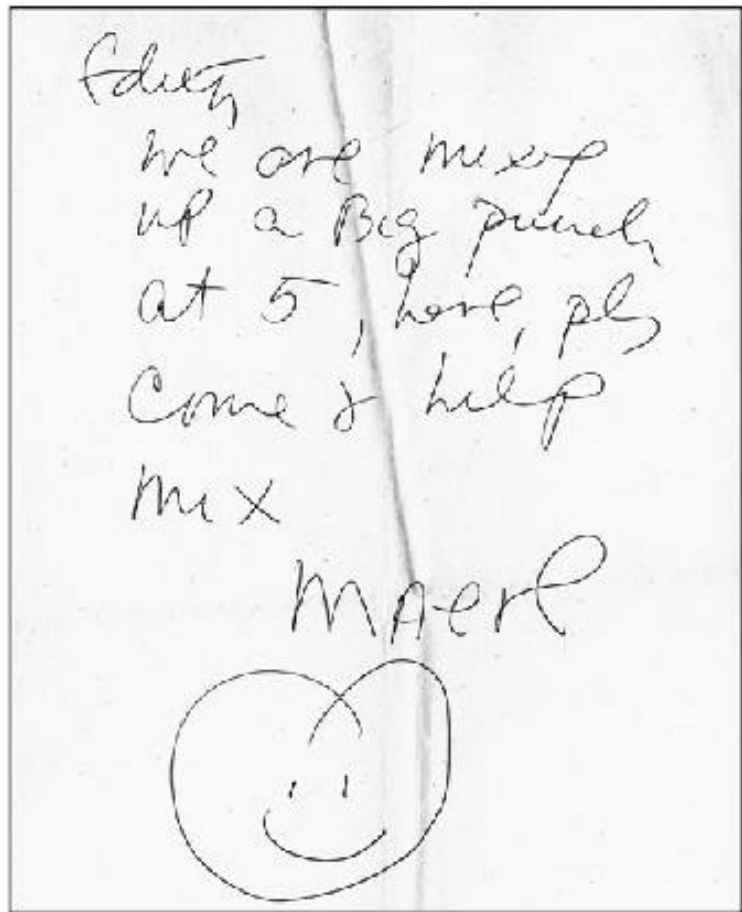 Edith,
We are mixing
up a Big punch
at 5, here, pls
Come & help
mix